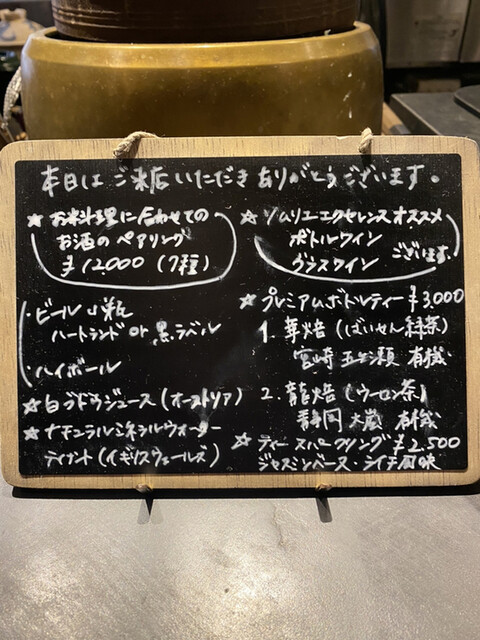 本日はご来店いただきありがとうございます。
★お料理に合わせての
お酒のペアリング
¥12000(7種)
・ビール小瓶
ハートランド or 黒ラベル
・ハイボール
★白ブドウジュース(オーストリア)
★ナチュラルミネラルウォーター
ティナント(イギリスウェールズ)
★ソムリエエクセレンスオススメ
ボトルワイン
グラスワイン ございます。
★プレミアムボトルティー ¥3,000
1. 華焙(ばいせん緑茶)
宮崎 五ヶ瀬 有機
2. 龍焙(ウーロン茶)
静岡 大嵐 有機
☆ティースパークリング ¥2,500
ジャスミンベース・ライチ風味